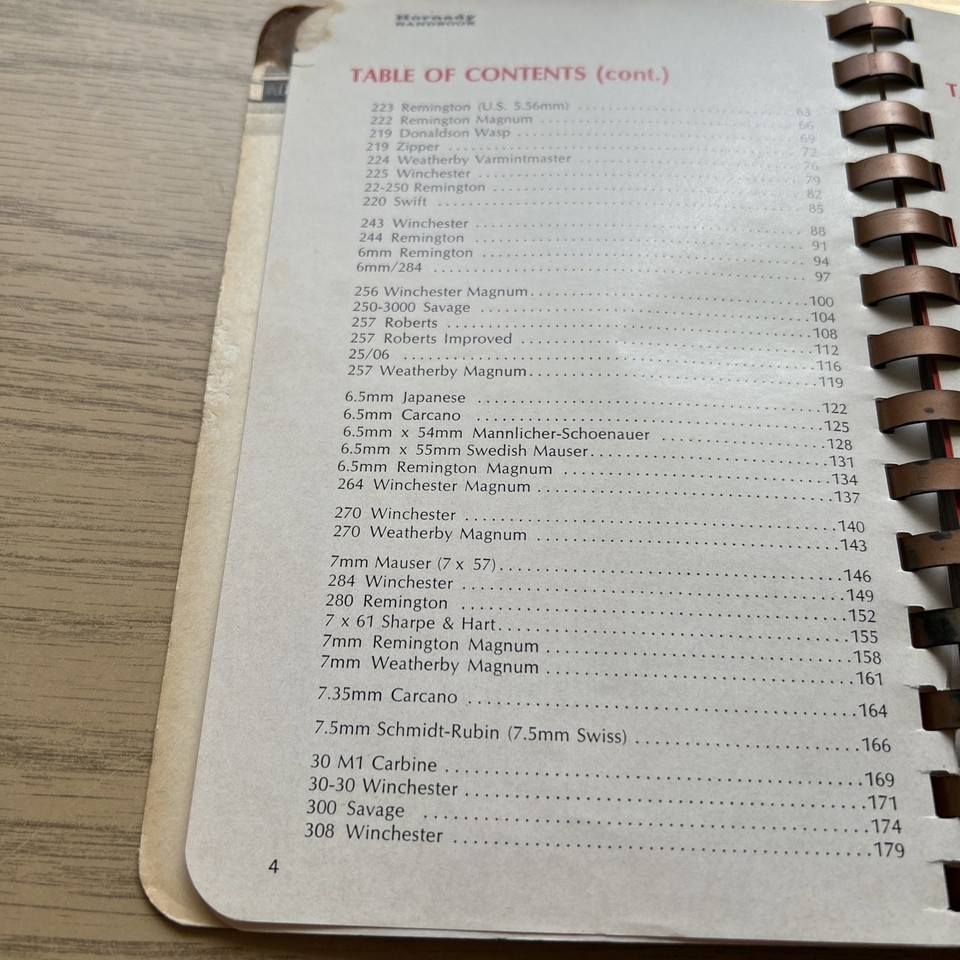 Hornady
HANDBOOK
TABLE OF CONTENTS (cont.)
223 Remington (U.S. 5.56mm) 63
222 Remington Magnum 66
219 Donaldson Wasp 69
219 Zipper 72
224 Weatherby Varmintmaster 76
225 Winchester 79
22-250 Remington 82
220 Swift 85
243 Winchester 88
244 Remington 91
6mm Remington 94
6mm/284 97
256 Winchester Magnum 100
250-3000 Savage 104
257 Roberts 108
257 Roberts Improved 112
25/06 116
257 Weatherby Magnum 119
6.5mm Japanese 122
6.5mm Carcano 125
6.5mm x 54mm Mannlicher-Schoenauer 128
6.5mm x 55mm Swedish Mauser 131
6.5mm Remington Magnum 134
264 Winchester Magnum 137
270 Winchester 140
270 Weatherby Magnum 143
7mm Mauser (7 x 57) 146
284 Winchester 149
280 Remington 152
7 x 61 Sharpe & Hart 155
7mm Remington Magnum 158
7mm Weatherby Magnum 161
7.35mm Carcano 164
7.5mm Schmidt-Rubin (7.5mm Swiss) 166
30 M1 Carbine 169
30-30 Winchester 171
300 Savage 174
308 Winchester 179
4